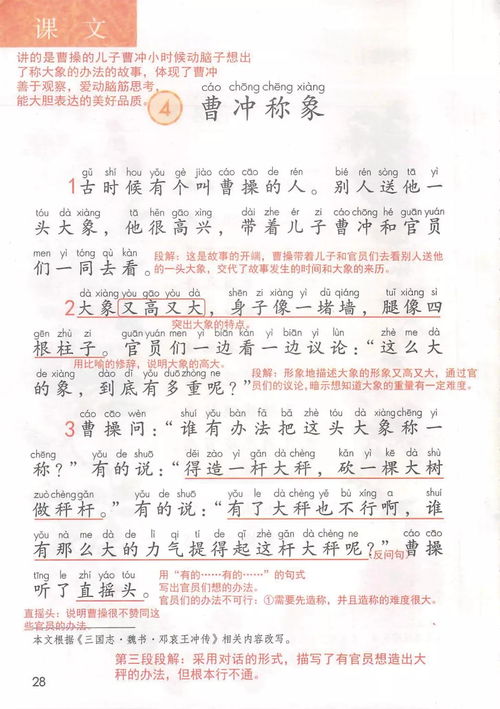 课 文
讲的是曹操的儿子曹冲小时候动脑子想出
了称大象的办法的故事，体现了曹冲
善于观察，爱动脑筋思考，
能大胆表达的美好品质。
cáo chōng chēng xiàng
4 曹冲称象
gǔ shí hou yǒu gè jiào cáo cāo de rén bié rén sòng tā yī
1古时候有个叫曹操的人。别人送他一
tóu dà xiàng tā hěn gāo xìng dài zhe ér zi cáo chōng hé guān yuán
头大象，他很高兴，带着儿子曹冲和官员
men yì tóng qù kàn
们一同去看。
段解：这是故事的开端，曹操带着儿子和官员们去看别人送他
的一头大象，交代了故事发生的时间和大象的来历。
dà xiàng yòu gāo yòu dà shēn zi xiàng yì dǔ qiáng tuǐ xiàng sì
2大象又高又大，身子像一堵墙，腿像四
突出大象的特点。
gēn zhù zi guān yuán men yì biān kàn yì biān yì lùn zhè me dà
根柱子。官员们一边看一边议论：“这么大
用比喻的修辞，说明大象的高大。
de xiàng dào dǐ yǒu duō zhòng ne
的象，到底有多重呢？”
段解：形象地描述大象的形象又高又大，通过官
员们的议论,暗示想知道大象的重量有一定难度。
cáo cāo wèn shuí yǒu bàn fǎ bǎ zhè tóu dà xiàng chēng yi
3 曹操问：“谁有办法把这头大象称一
chēng yǒu de shuō děi zào yì gǎn dà chèng kǎn yì kē dà shù
称？”有的说：“得造一杆大秤，砍一棵大树
zuò chèng gǎn yǒu de shuō yǒu le dà chèng yě bù xíng a shuí
做秤杆。”有的说：“有了大秤也不行啊，谁
yǒu nà me dà de lì qi tí de qǐ zhè gǎn dà chèng ne cáo cāo
有那么大的力气提得起这杆大秤呢？”曹操
反问句
tīng le zhí yáo tóu
听了直摇头。
用“有的……有的……”的句式
写出官员们想的办法。
官员们的办法不可行：①需要先造称，并且造称的难度很大。
直摇头：说明曹操很不赞同这
些官员的办法。
本文根据《三国志·魏书·邓哀王冲传》相关内容改写。
第三段段解：采用对话的形式，描写了有官员想造出大
秤的办法，但根本行不通。
28